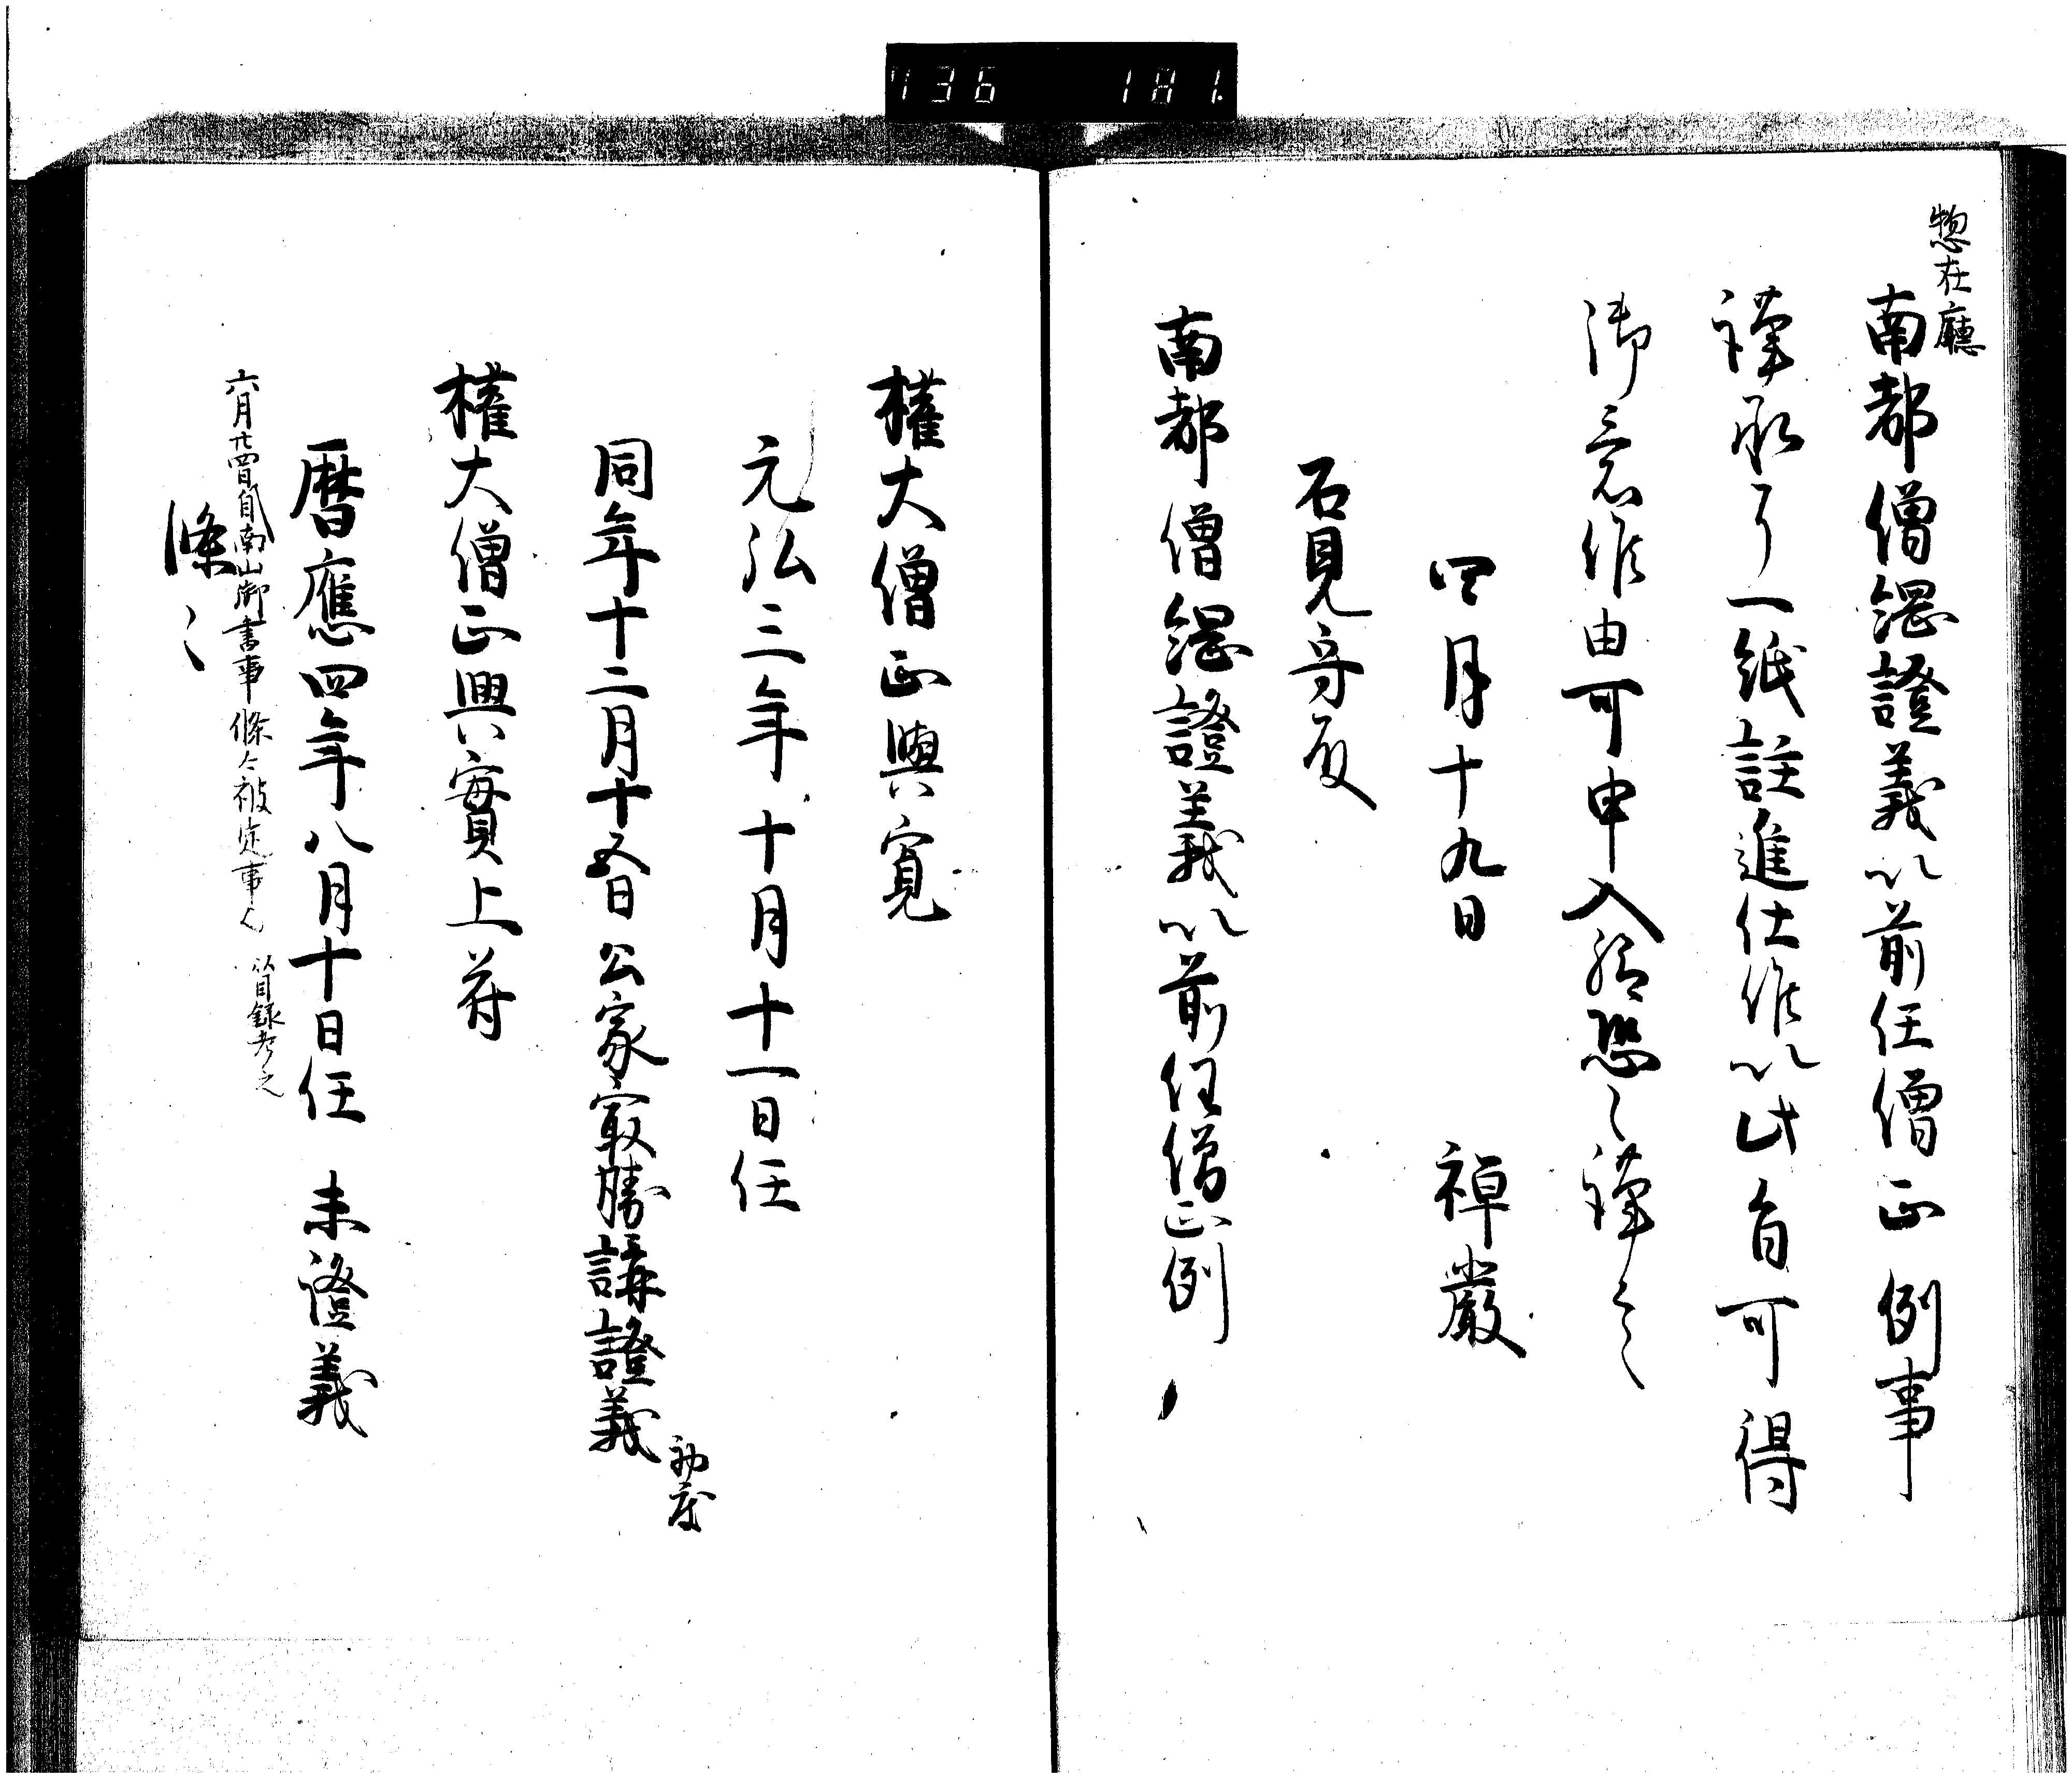 736 181.
惣在廳
南都僧綱證義以前任僧正例事
謹承了一紙註進仕候以此旨可得
御意候由可申入給恐々謹言
四月十九日 禅嚴
石見守殿
南都僧綱證義以前任僧正例
權大僧正興寛
元弘三年十月十一日任
同年十二月十五日公家冣勝講證義
初度
權大僧正興實上苻
暦應四年八月十日任 未證義
六月廿四日自南山御書事條々被定事
目録考之
條々